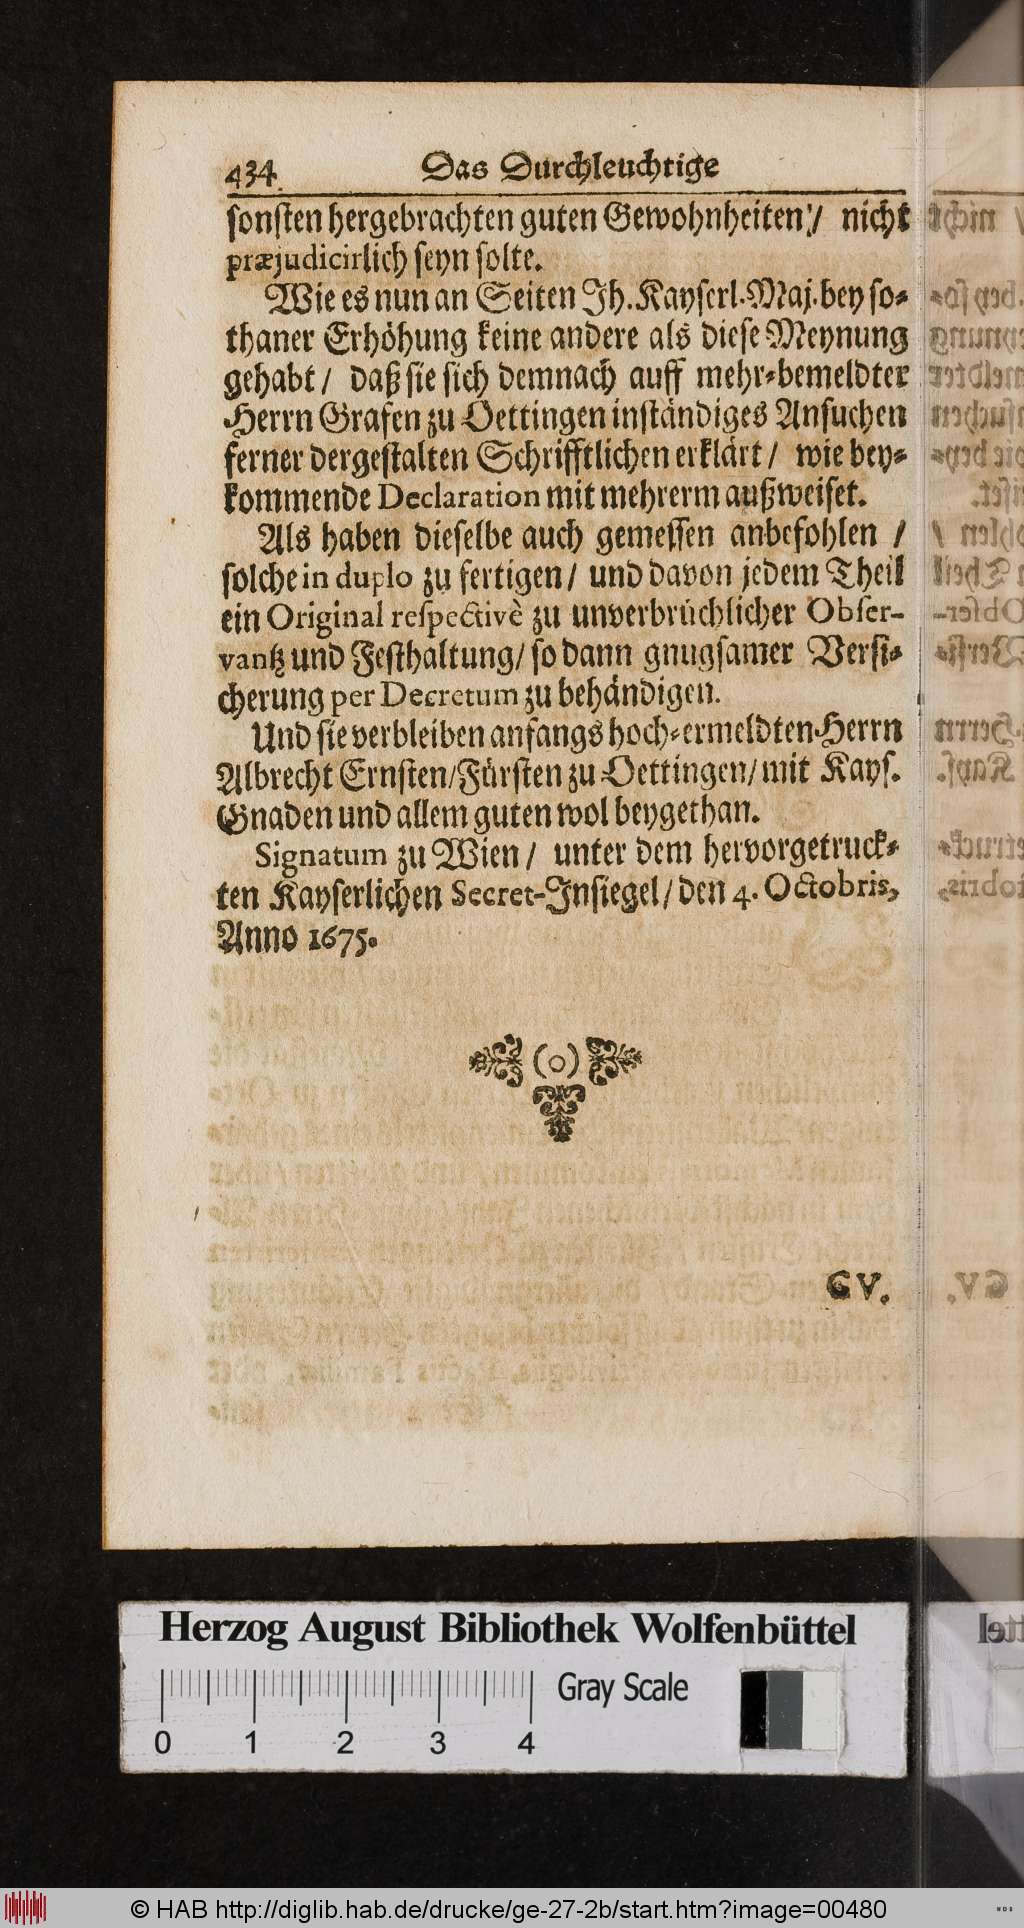 434 Das Durchleuchtige
sonsten hergebrachten guten Gewohnheiten / nicht
præjudicirlich seyn solte.
Wie es nun an Seiten Ih. Kayserl. Maj. bey so-
thaner Erhöhung keine andere als diese Meynung
gehabt / daß sie sich demnach auff mehr-bemeldter
Herrn Grafen zu Oettingen inständiges Ansuchen
ferner dergestalten Schrifftlichen erklärt / wie bey-
kommende Declaration mit mehrerm außweiset.
Als haben dieselbe auch gemessen anbefohlen /
solche in duplo zu fertigen / und davon jedem Theil
ein Original respectivè zu unverbrüchlicher Obser-
vantz und Festhaltung / so dann gnugsamer Versi-
cherung per Decretum zu behändigen.
Und sie verbleiben anfangs hoch-ermeldten Herrn
Albrecht Ernsten / Fürsten zu Oettingen / mit Kays.
Gnaden und allem guten wol beygethan.
Signatum zu Wien / unter dem hervorgetruck-
ten Kayserlichen Secret-Insiegel / den 4. Octobris,
Anno 1675.
(○)
CV.
Herzog August Bibliothek Wolfenbüttel
Gray Scale
0 1 2 3 4
© HAB http://diglib.hab.de/drucke/ge-27-2b/start.htm?image=00480